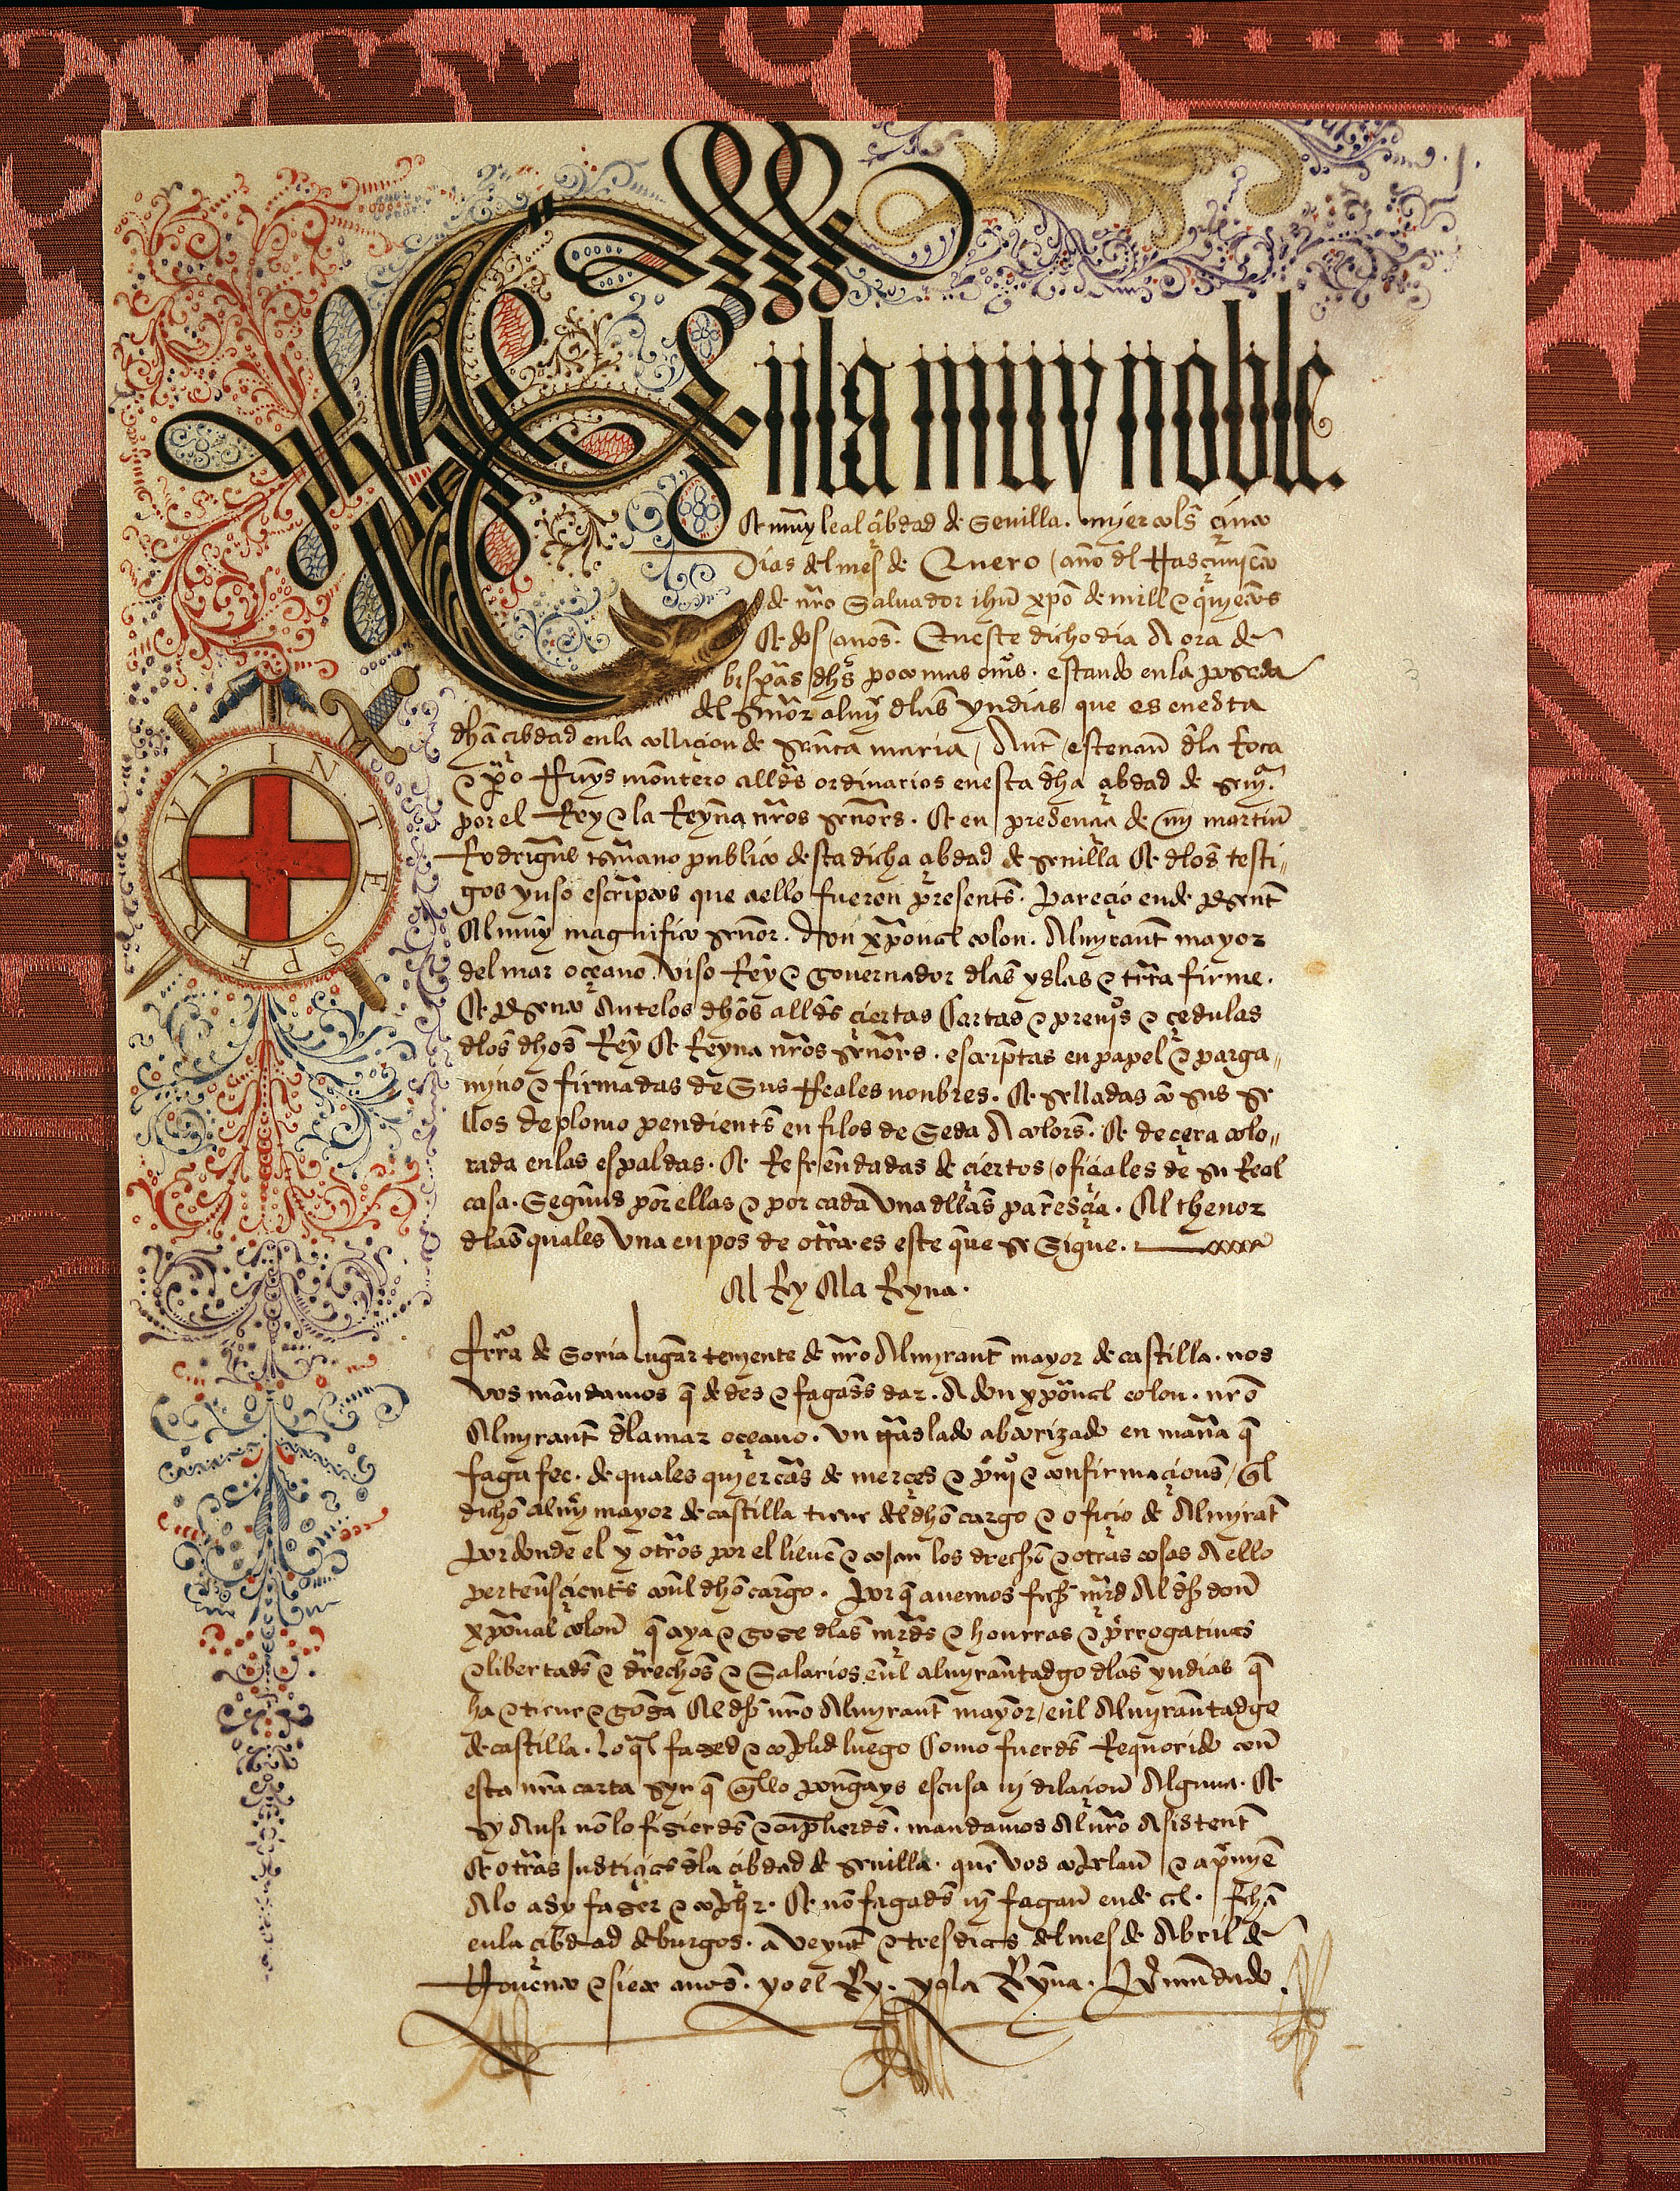 En la muy noble.
& muy leal çibdad de Seuilla. myercols çinco
Dias del mes de Enero / año del Nasçimyento
de nro Saluador ihu xpo de mill e quinientos
& dos años. En este dicho dia A ora de
bisperas dhas poco mas o menos. estando en la posada
del señor almy dlas yndias que es en esta
dha çibdad en la collaçion de santa maria / Ante esteuan dla Roca
e pero Ruys montero alldes ordinarios en esta dha çibdad de seuª.
por el Rey e la Reyna nros señores. & en presençia de my martin
Rodrigues escriuano publico desta dicha çibdad de seuilla & dlos testi-
gos yuso escriptos que a ello fueron presents. pareçio ende presente
Al muy magnifico señor. don xpoual colon. Almyrante mayor
del mar oçeano. viso Rey e gouernador dlas yslas e trra firme.
& presento Ante los dhos alldes çiertas Cartas e preuios e çedulas
dlos dhos Rey & Reyna nros señores. escriptas en papel e parga-
myno e firmadas de Sus Reales nonbres. & selladas con sus se
llos de plomo pendientes en filos de Seda A colors. & de çera colo-
rada en las espaldas. & Refrendadas de çiertos ofiçiales de su Real
casa. Segund por ellas e por cada vna dllas paresçia. Al thenor
dlas quales vna en pos de otra es este que se Sigue.
Al Rey A la Reyna.
frrª de Soria lugar tenyente de nro Almyrante mayor de castilla. nos
vos mandamos q dedes e fagades dar. A don xpoual colon. nro
Almyrante dla mar oçeano. vn traslado abtorizado en manera q
faga fee. de quales quyer cartas de merçes e priuº e confirmaçions / ql
dicho almy mayor de castilla tiene del dho cargo e ofiçio de Almyrate
por donde el y otros por el lieuen e cojan los drechos e otras cosas A ello
pertenesçientes conl dho cargo. por q auemos fecho mrçd Al dho don
xpoual colon q aya e gose dlas mrçdes e honrras e prerrogatiuas
e libertades e drechos e Salarios enl almyrantadgo dlas yndias q
ha e tiene e gosa Al dho nro Almyrante mayor / enl Almyrantadgo
de castilla. lo ql fased e conplid luego Como fuerdes Requerido con
esta nra carta syn q enllo pongays escusa ni dilaçion Alguna. &
sy Ansi non lo fisierdes e cunplierdes. mandamos Al nro Asistente
& otras Justiçias dla çibdad de seuilla. que vos conpelan e apremyen
A lo asy faser e conplir. & non fagades ni fagan ende al. fecha
en la çibdad de burgos. a veynte e tres dias del mes de Abril de
Nouenta e siete anos. yo el Rey. yo la Reyna. por mandado
INTE SPERAVI.